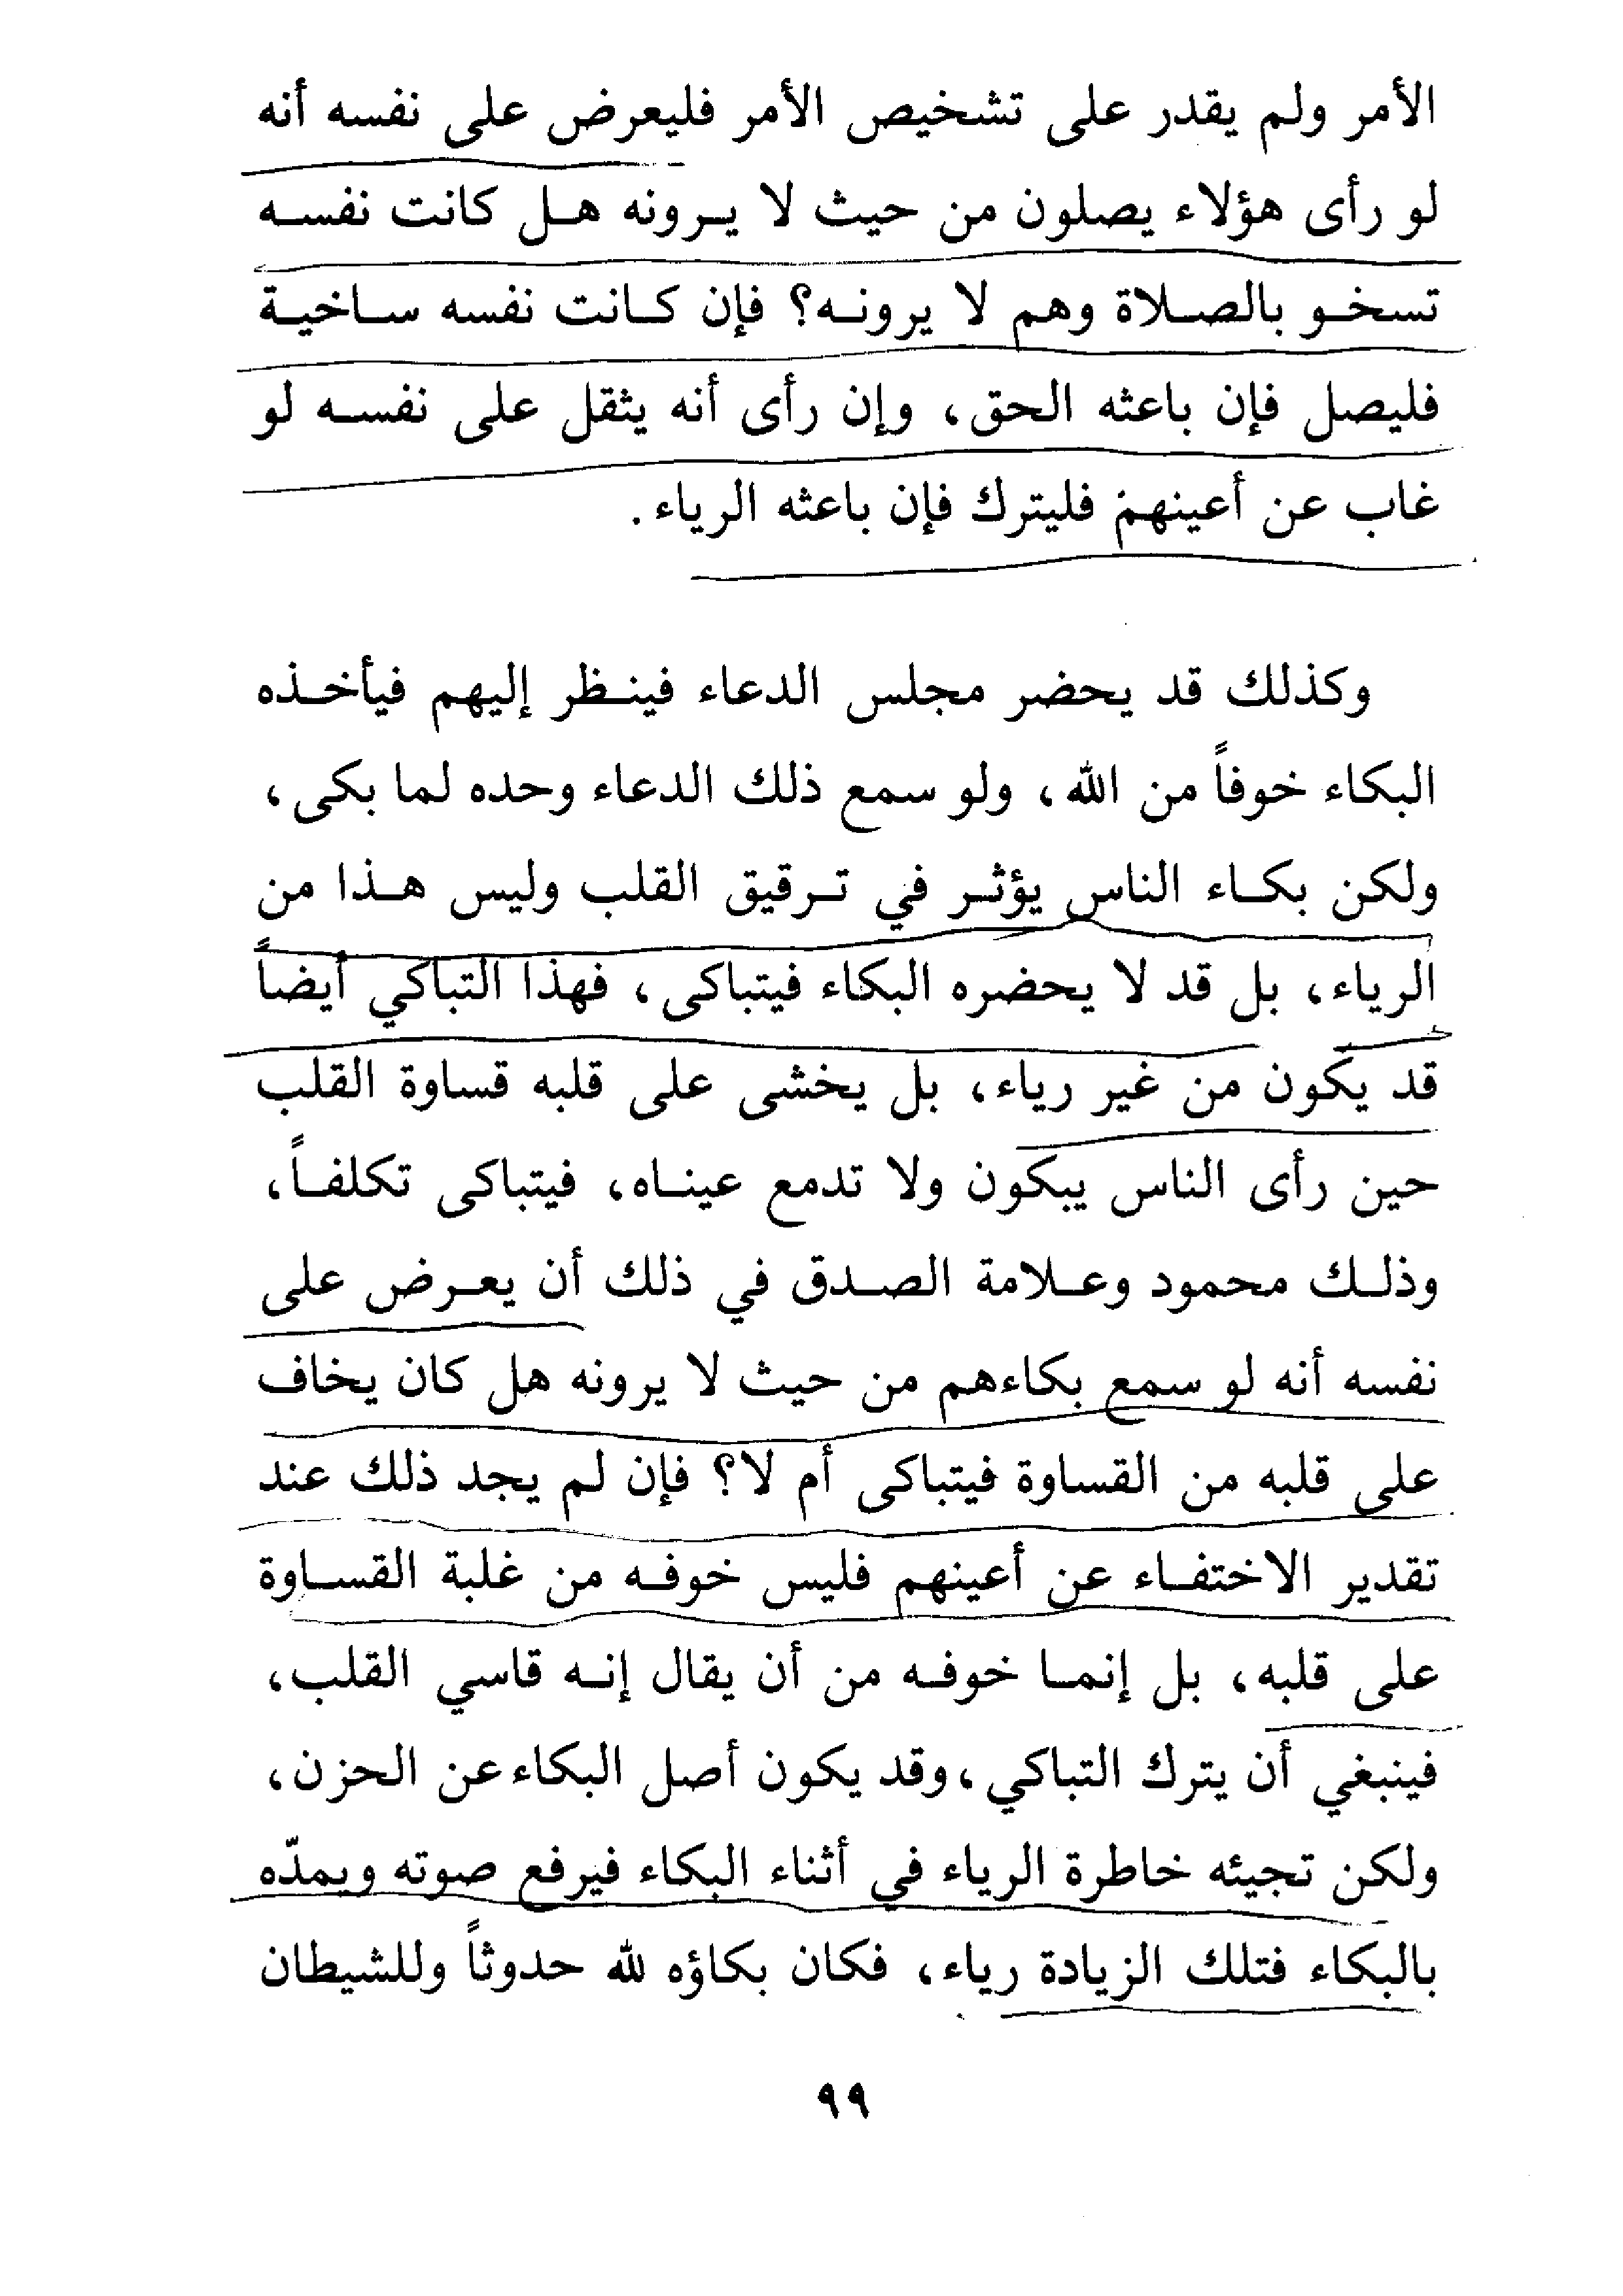 الأمر ولم يقدر على تشخيص الأمر فليعرض على نفسه أنه
لو رأى هؤلاء يصلون من حيث لا يرونه هل كانت نفسه
تسخو بالصلاة وهم لا يرونه؟ فإن كانت نفسه ساخية
فليصل فإن باعثه الحق، وإن رأى أنه يثقل على نفسه لو
غاب عن أعينهم فليترك فإن باعثه الرياء.
وكذلك قد يحضر مجلس الدعاء فينظر إليهم فيأخذه
البكاء خوفاً من الله، ولو سمع ذلك الدعاء وحده لما بكى،
ولكن بكاء الناس يؤثر في ترقيق القلب وليس هذا من
الرياء، بل قد لا يحضره البكاء فيتباكى، فهذا التباكي أيضاً
قد يكون من غير رياء، بل يخشى على قلبه قساوة القلب
حين رأى الناس يبكون ولا تدمع عيناه، فيتباكى تكلفاً،
وذلك محمود وعلامة الصدق في ذلك أن يعرض على
نفسه أنه لو سمع بكاءهم من حيث لا يرونه هل كان يخاف
على قلبه من القساوة فيتباكى أم لا؟ فإن لم يجد ذلك عند
تقدير الاختفاء عن أعينهم فليس خوفه من غلبة القساوة
على قلبه، بل إنما خوفه من أن يقال إنه قاسي القلب،
فينبغي أن يترك التباكي، وقد يكون أصل البكاء عن الحزن،
ولكن تجيئه خاطرة الرياء في أثناء البكاء فيرفع صوته ويمدّه
بالبكاء فتلك الزيادة رياء، فكان بكاؤه لله حدوثاً وللشيطان
٩٩